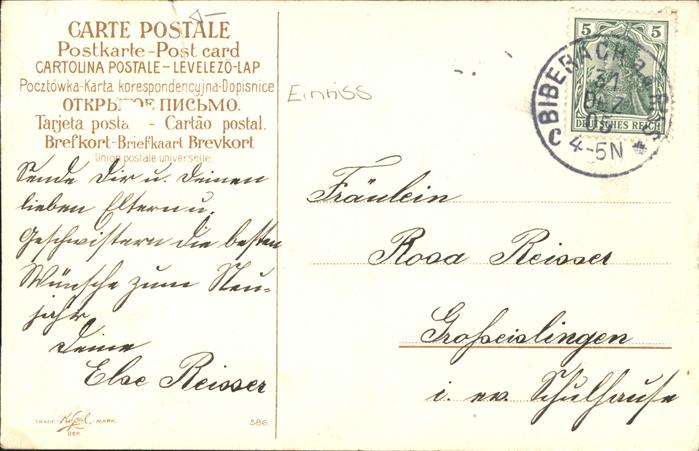 CARTE POSTALE
Postkarte-Post card
CARTOLINA POSTALE-LEVELEZŐ-LAP
Pocztówka-Karta korespondencyjna-Dopisnice
ОТКРЫТОЕ ПИСЬМО.
Tarjeta posta - Cartão postal.
Brefkort-Briefkaart Brevkort
Union postale universelle.
Sende Dir u. Deinen
lieben Eltern u.
Geschwistern die besten
Wünsche zum Neu-
jahr
Deine
Else Reisser
TRADE MARK.
DEP.
586.
Einriss
5 5
DEUTSCHES REICH
BIBERACH
31
DEZ
05
4-5N
C
Fräulein
Rosa Reisser
Großeislingen
i. ev. Schulhause